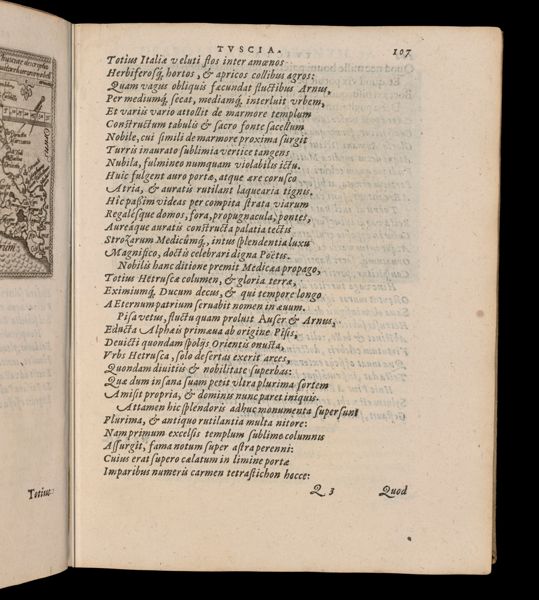 Totius
TVSCIA. 107
Totius Italiæ veluti flos inter amœnos
Herbiferosq́; hortos, & apricos collibus agros:
Quam vagus obliquis fæcundat fluctibus Arnus,
Per mediumq́; secat, mediamq́; interluit vrbem,
Et variis vario attollit de marmore templum
Constructum tabulis & sacro fonte sacellum
Nobile, cui simili de marmore proxima surgit
Turris inaurato sublimia vertice tangens
Nubila, fulmineo numquam violabilis ictu.
Huic fulgent auro portæ, atque ære corusco
Atria, & auratis rutilant laquearia tignis.
Hic paßim videas per compita strata viarum
Regalesque domos, fora, propugnacula, pontes,
Aureáque auratis constructa palatia tectis
Strozarum Medicûmq́;, intus splendentia luxu
Magnifico, doctis celebrari digna Poëtis.
Nobilis hanc ditione premit Medicæa propago,
Totius Hetruscæ columen, & gloria terræ,
Eximiumq́; Ducum decus, & qui tempore longo
AEternum patrium seruabit nomen in æuum.
Pisa vetus, fluctu quam proluit Auser & Arnus,
Educta Alphæis primæua ab origine Pisis,
Deuicti quondam spolijs Orientis onusta,
Vrbs Hetrusca, solo desertas exerit arces,
Quondam diuitiis & nobilitate superbas:
Quæ dum insana suam petit vltra plurima sortem
Amisit propria, & dominis nunc paret iniquis.
Attamen hîc splendoris adhuc monumenta supersunt
Plurima, & antiquo rutilantia multa nitore:
Nam primum excelsis templum sublime columnis
Assurgit, fama notum super astra perenni:
Cuius erat supero cælatum in limine portæ
Imparibus numeris carmen tetrastichon hocce:
Q 3 Quod